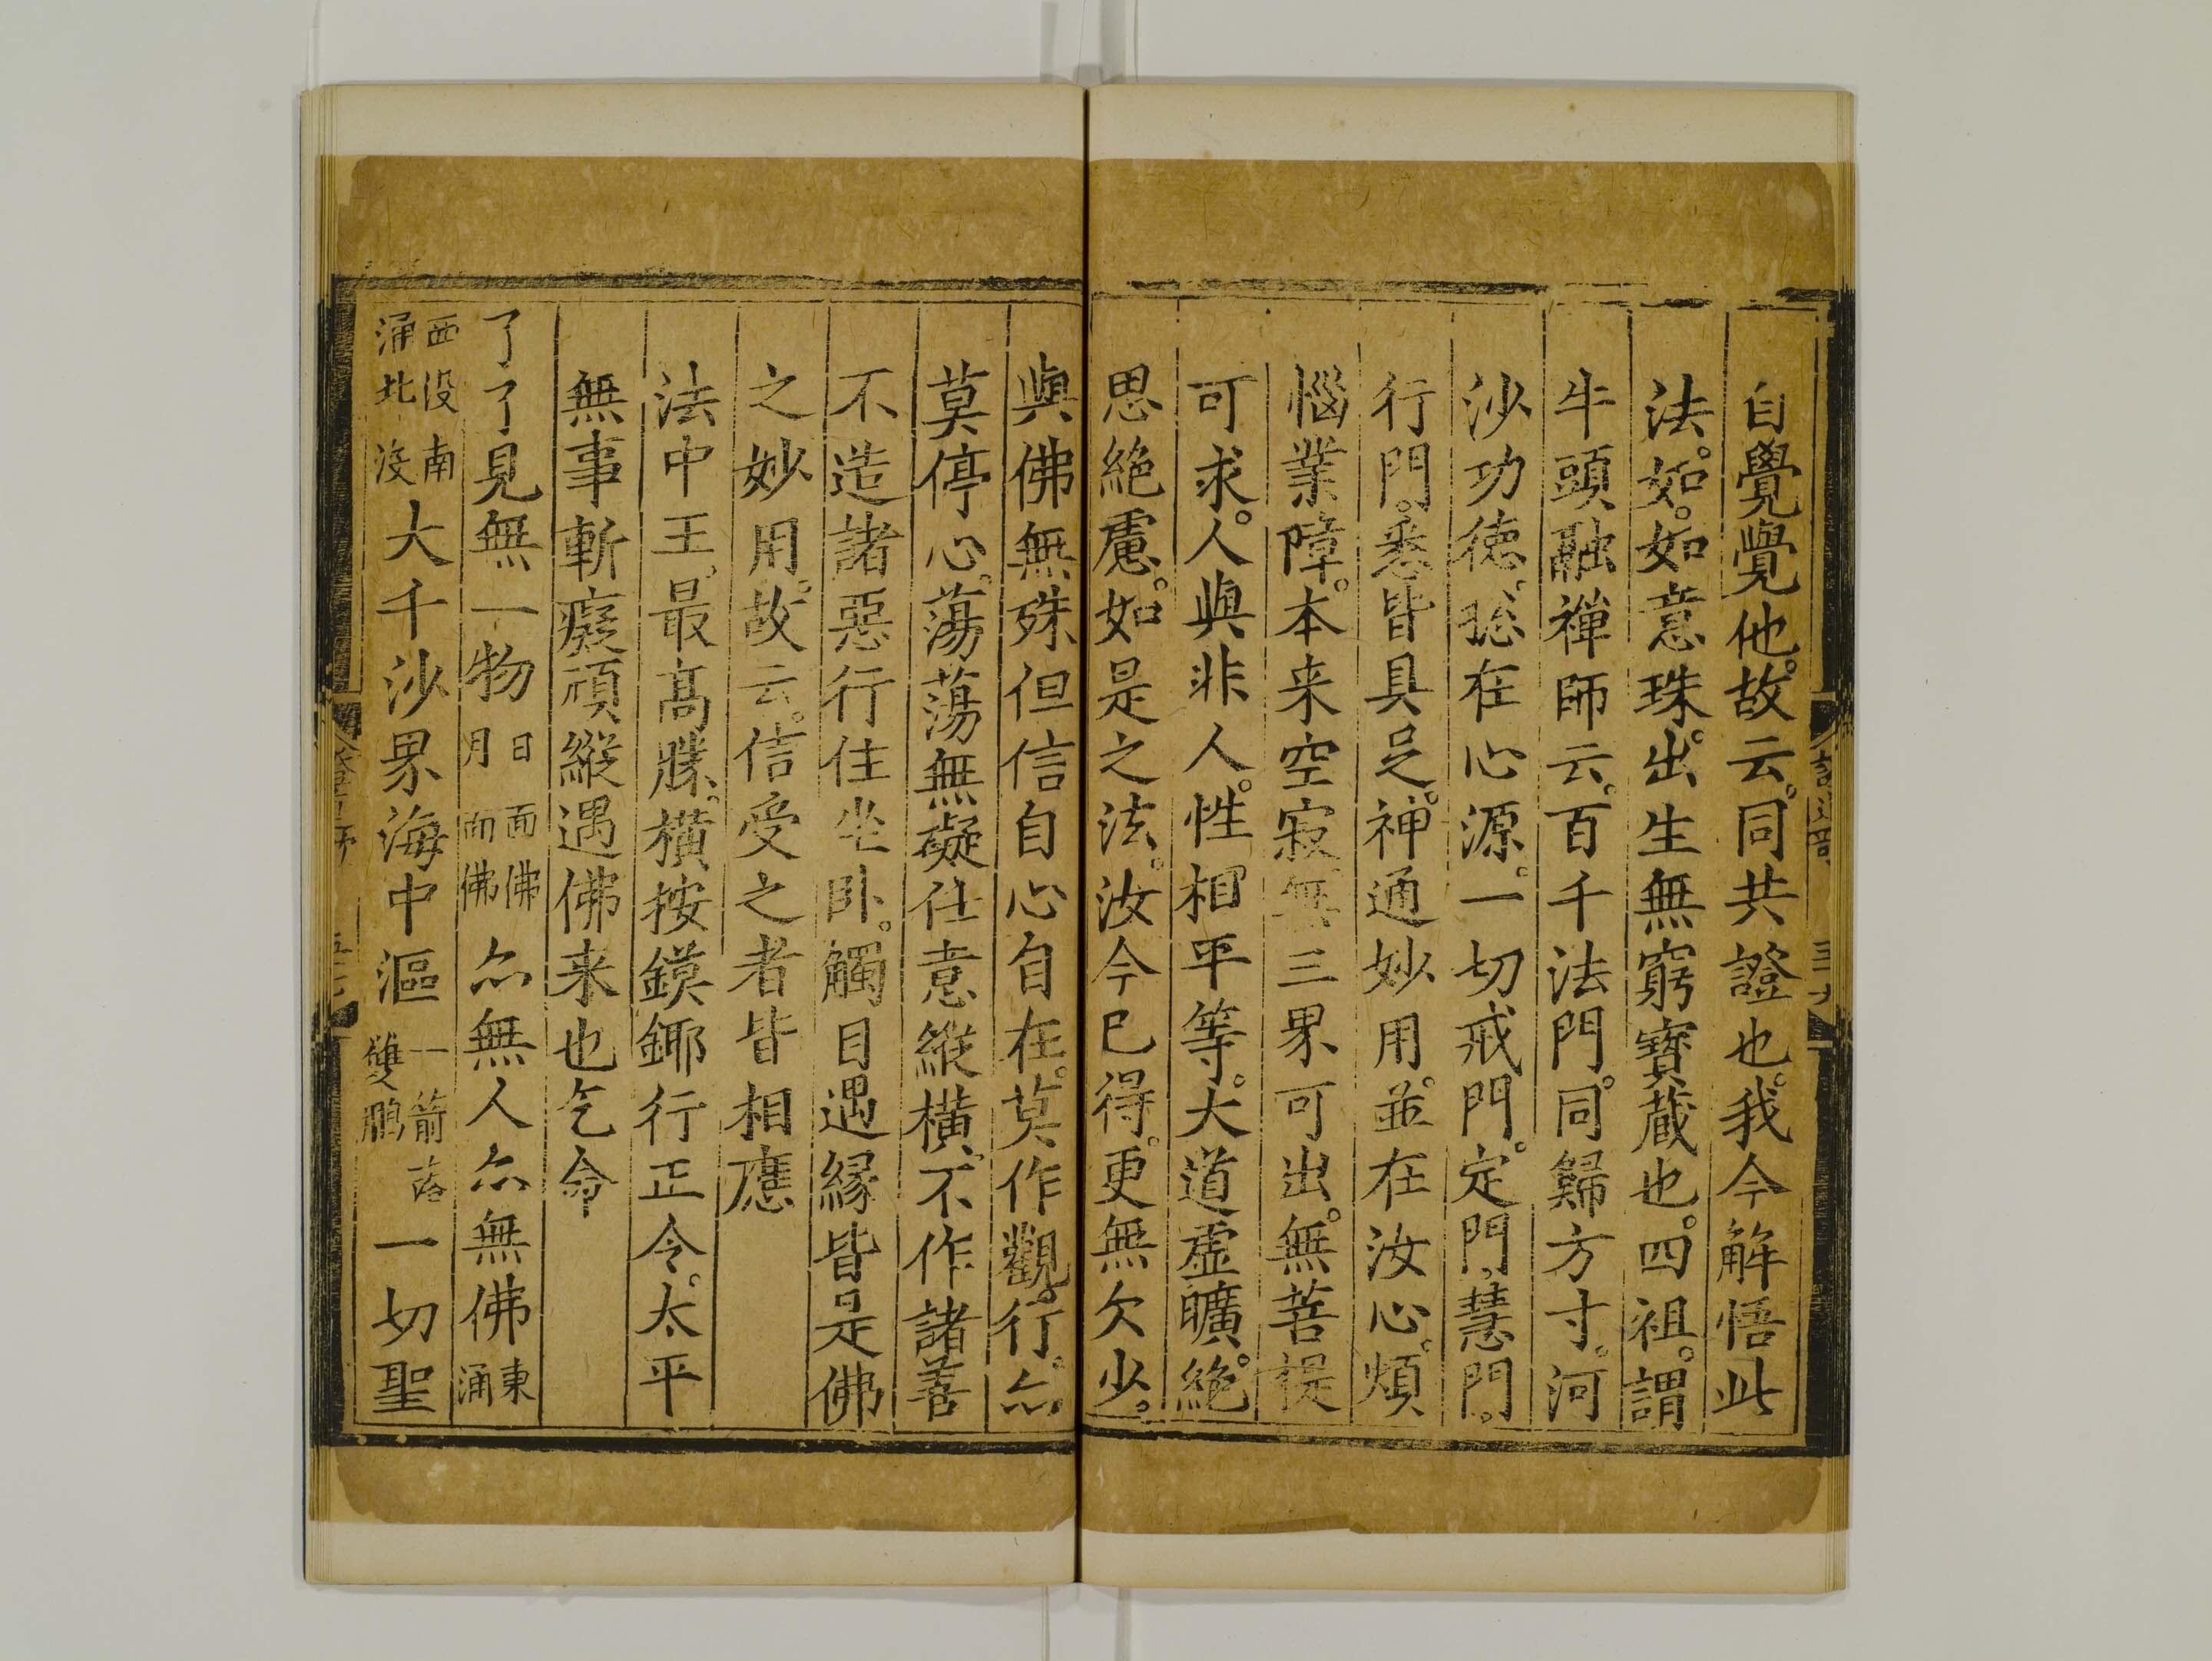 自覺覺他。故云。同共證也。我今解悟此
法。如。如意珠。出生無窮寳蔵也。四祖。謂
牛頭融禅師云。百千法門。同歸方寸。河
沙功徳。捴在心源。一切戒門。定門。慧門。
行門。悉皆具足。神通妙用。並在汝心。煩
惱業障。本来空寂。無三界可出。無菩提
可求。人與非人。性相平等。大道虚曠。絶
思絶慮。如是之法。汝今已得。更無欠少。
與佛無殊但信自心自在。莫作觀行。亦
莫停心。蕩蕩無礙任意縱横。不作諸善
不造諸惡行住坐卧。觸目遇縁皆是佛
之妙用。故云。信受之者皆相應
法中王。最髙勝。横按鏌鎁行正令。太平
無事斬癡頑縱遇佛来也乞命
了了見無一物日面佛月面佛亦無人亦無佛東涌
西没南涌北没大千沙界海中漚一箭落雙鵰一切聖